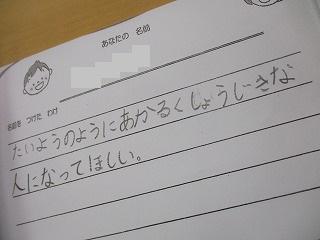 あなたの 名前
名前を つけた わけ
たいようのようにあかるくしょうじきな
人になってほしい。